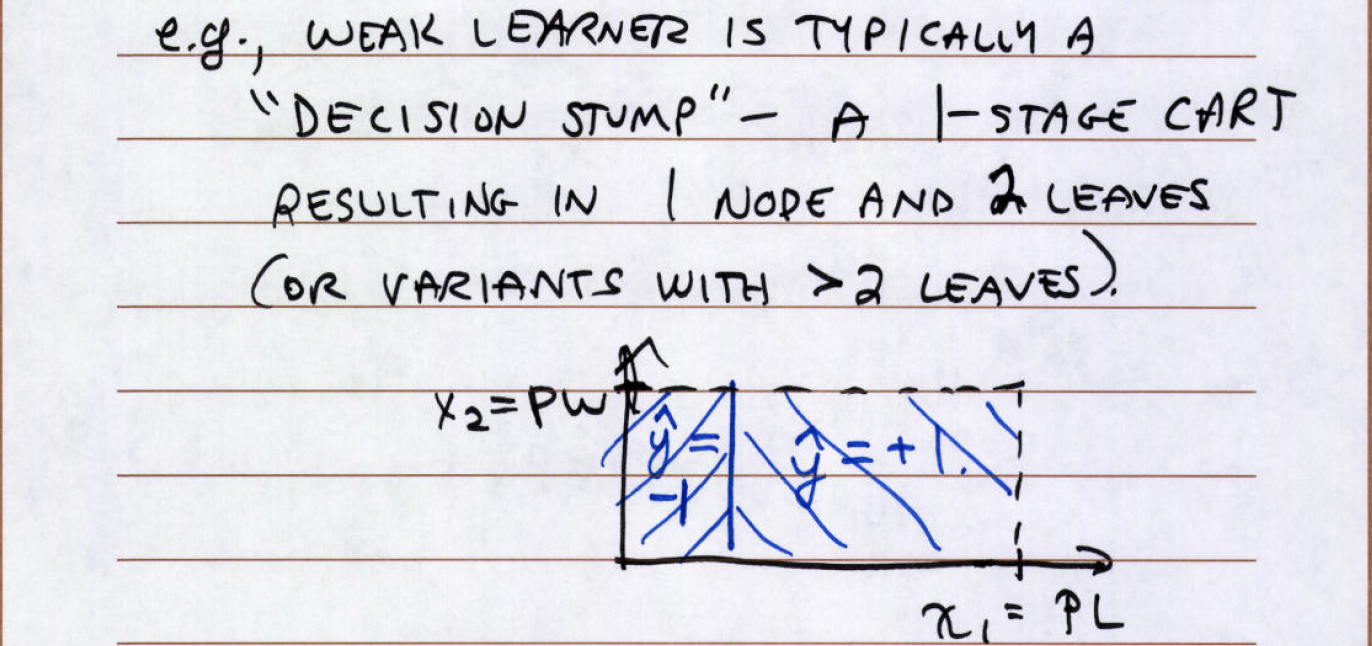 e.g., WEAK LEARNER IS TYPICALLY A
"DECISION STUMP" – A 1-STAGE CART
RESULTING IN 1 NODE AND 2 LEAVES
(OR VARIANTS WITH >2 LEAVES).
x₂ = PW
ŷ = -1
ŷ = +1.
x₁ = PL